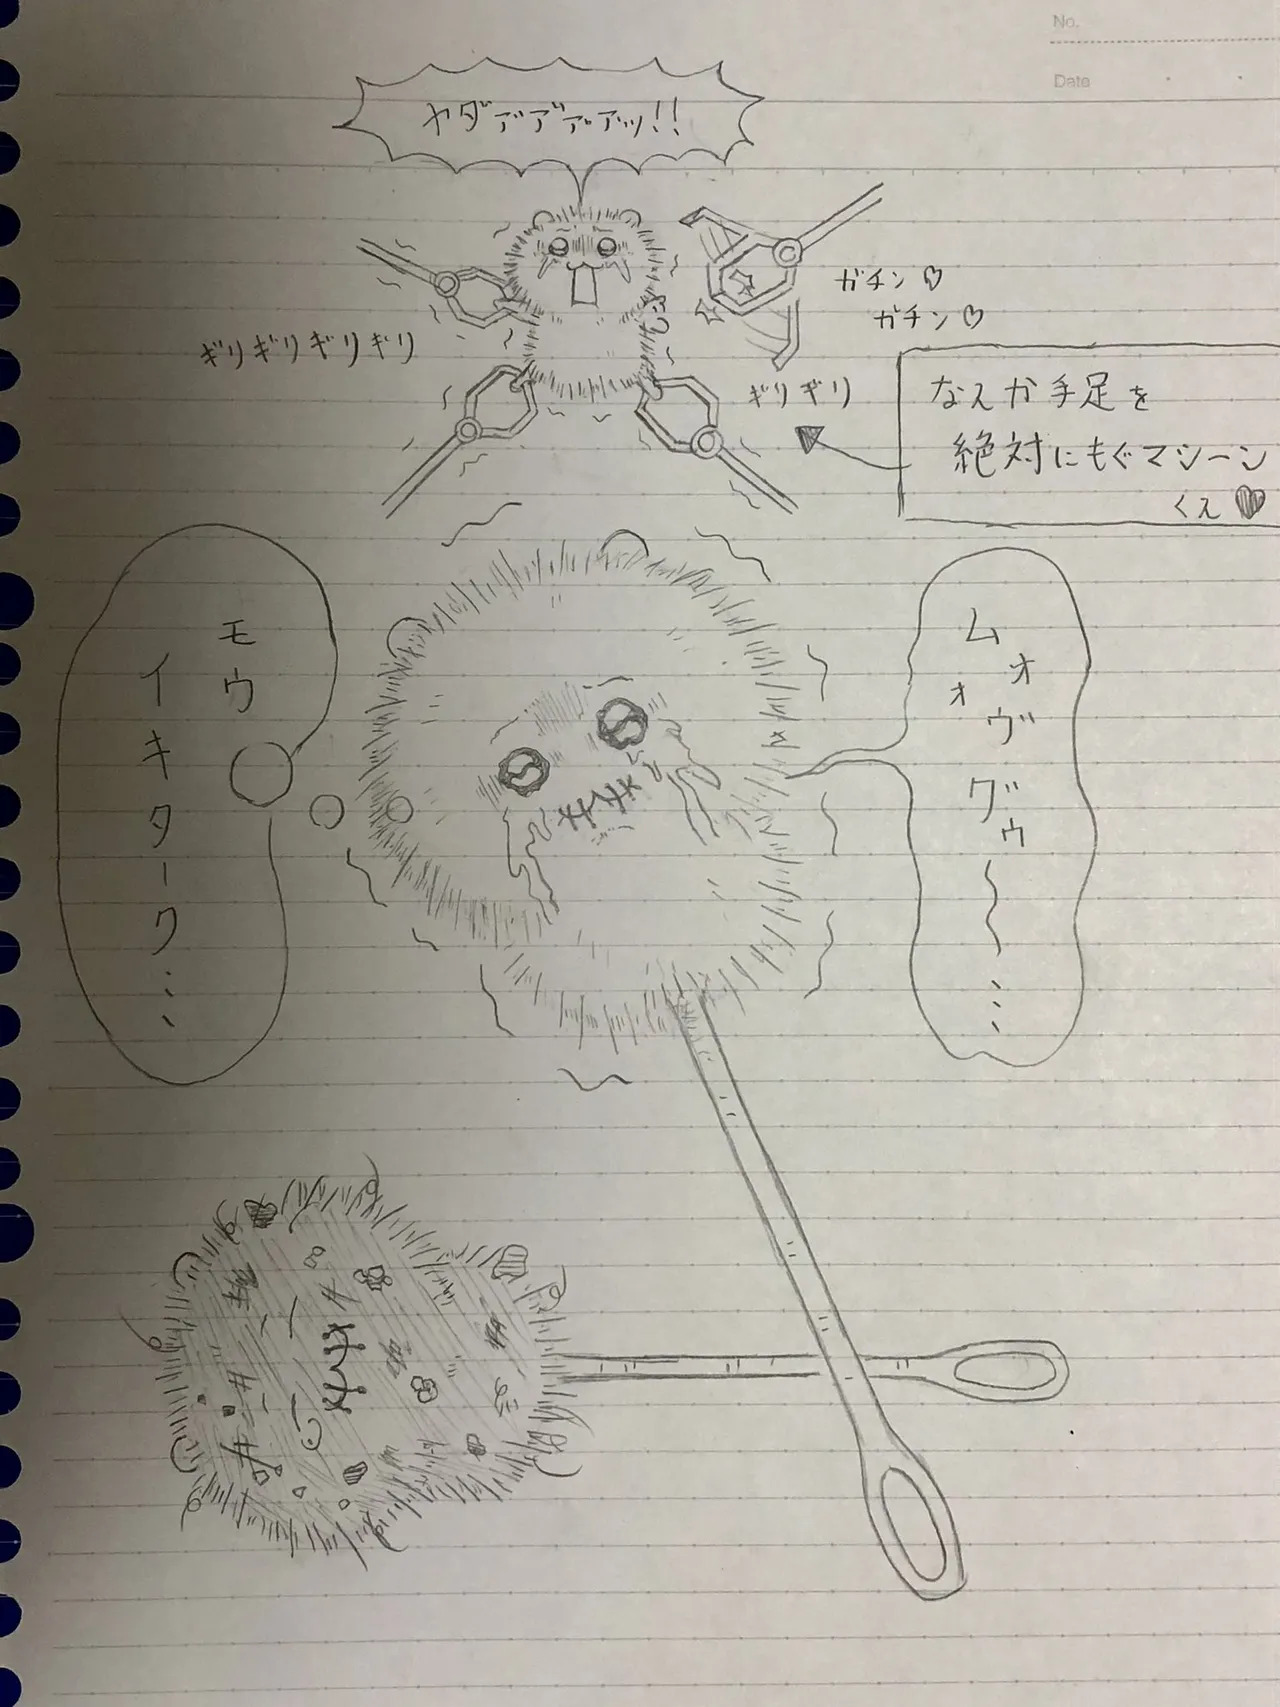 No.
Date
ヤダァ゙ア゙ァ゙アッ!!
ガチン♡
ガチン♡
ギリギリギリギリ
ギリギリ
なえか手足を
絶対にもぐマシーン
くえ♥
ムォォヴグゥ〜…
モウ
イキターク…